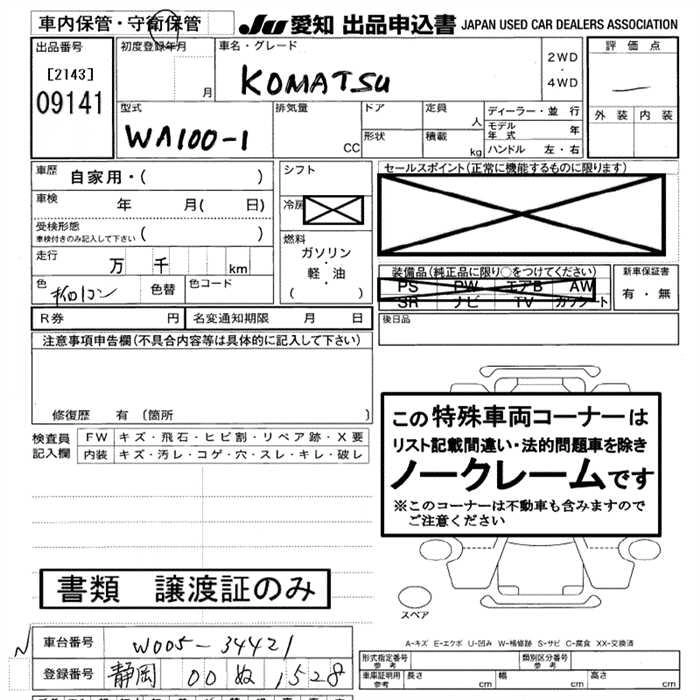 車内保管・守衛保管
JU 愛知 出品申込書 JAPAN USED CAR DEALERS ASSOCIATION
出品番号
[2143]
09141
初度登録年月
月
車名・グレード
KOMATSU
2WD
・
4WD
評価点
外装 内装
型式
WA100-1
排気量
CC
ドア
形状
定員
人
積載
kg
ディーラー・並行
モデル年式 年
ハンドル 左・右
車歴 自家用・( )
車検 年 月( 日)
受検形態
車検付きのみ記入して下さい ( )
走行 万 千 km
色
色替
色コード
シフト
冷房
燃料
ガソリン
・
軽・油
( )
セールスポイント(正常に機能するものに限ります)
装備品(純正品に限り○をつけてください)
PS PW エアB AW
SR ナビ TV カセット
新車保証書
有・無
R券 円
名変通知期限 月 日
後日品
注意事項申告欄(不具合内容等は具体的に記入して下さい)
修復歴 有(箇所 )
検査員記入欄
FW キズ・飛石・ヒビ割・リペア跡・X要
内装 キズ・汚レ・コゲ・穴・スレ・キレ・破レ
この特殊車両コーナーは
リスト記載間違い・法的問題車を除き
ノークレームです
※このコーナーは不動車も含みますので
ご注意ください
書類 譲渡証のみ
スペア
A-キズ E-エクボ U-凹み W-補修跡 S-サビ C-腐食 XX-交換済
車台番号 W005-34421
登録番号 静岡 00 ぬ 1528
形式指定番号
参考
類別区分番号
参考
車庫証明用
参考
長さ cm
幅 cm
高さ cm